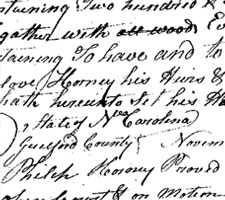 ntaining Two hundred &
gather with all wood
taining To have and to
love Horney his Heirs &
hath hereunto Set his
State of No Carolina
Guilford County Novem
Philip Horney Proved
open Court & on Motion